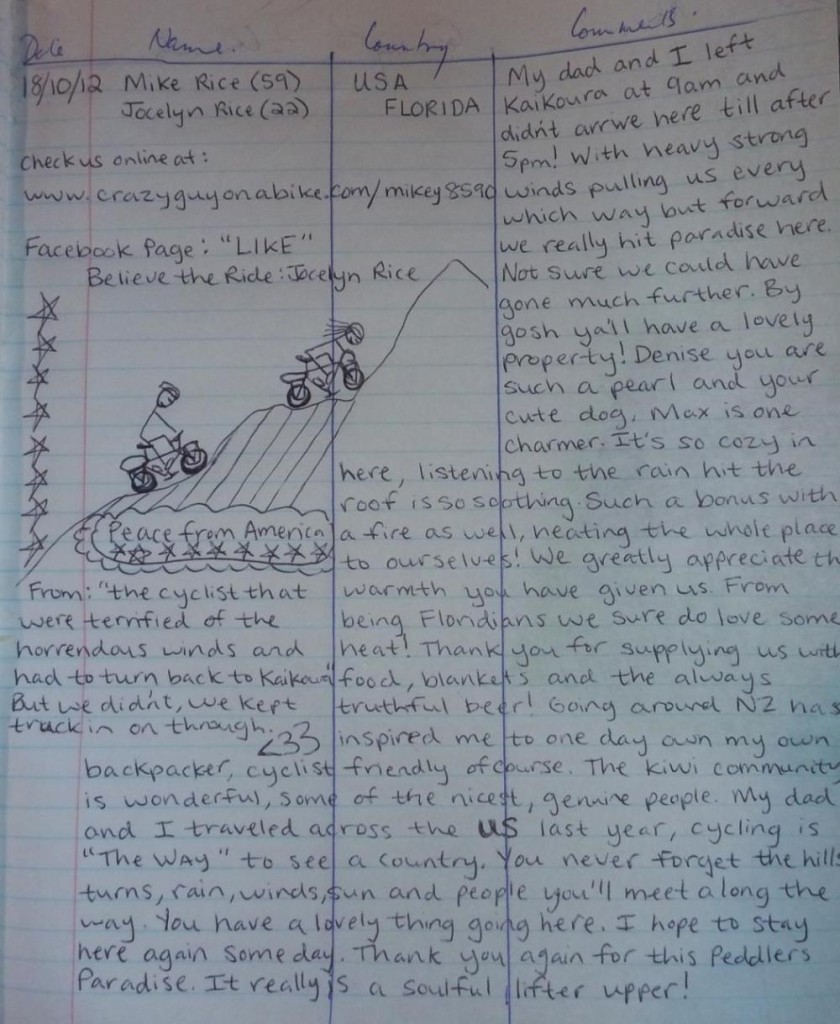 Date Name. Country Comments.
18/10/12 Mike Rice (59) USA
Jocelyn Rice (22) FLORIDA
check us online at:
www.crazyguyonabike.com/mikey8590
Facebook Page: "LIKE"
Believe the Ride: Jocelyn Rice
Peace from America
From: "the cyclist that
were terrified of the
horrendous winds and
had to turn back to Kaikoura"
But we didn't, we kept
truckin on through.
<33
My dad and I left
Kaikoura at 9am and
didn't arrive here till after
5pm! With heavy strong
winds pulling us every
which way but forward
we really hit paradise here.
Not sure we could have
gone much further. By
gosh ya'll have a lovely
property! Denise you are
such a pearl and your
cute dog, Max is one
charmer. It's so cozy in
here, listening to the rain hit the
roof is so soothing. Such a bonus with
a fire as well, heating the whole place
to ourselves! We greatly appreciate th
warmth you have given us. From
being Floridians we sure do love some
heat! Thank you for supplying us with
food, blankets and the always
truthful beer! Going around NZ has
inspired me to one day own my own
backpacker, cyclist friendly ofcourse. The kiwi community
is wonderful, some of the nicest, genuine people. My dad
and I traveled across the US last year, cycling is
"The WAY" to see a country. You never forget the hills
turns, rain, winds, sun and people you'll meet along the
way. You have a lovely thing going here. I hope to stay
here again some day. Thank you again for this Peddlers
Paradise. It really is a soulful lifter upper!